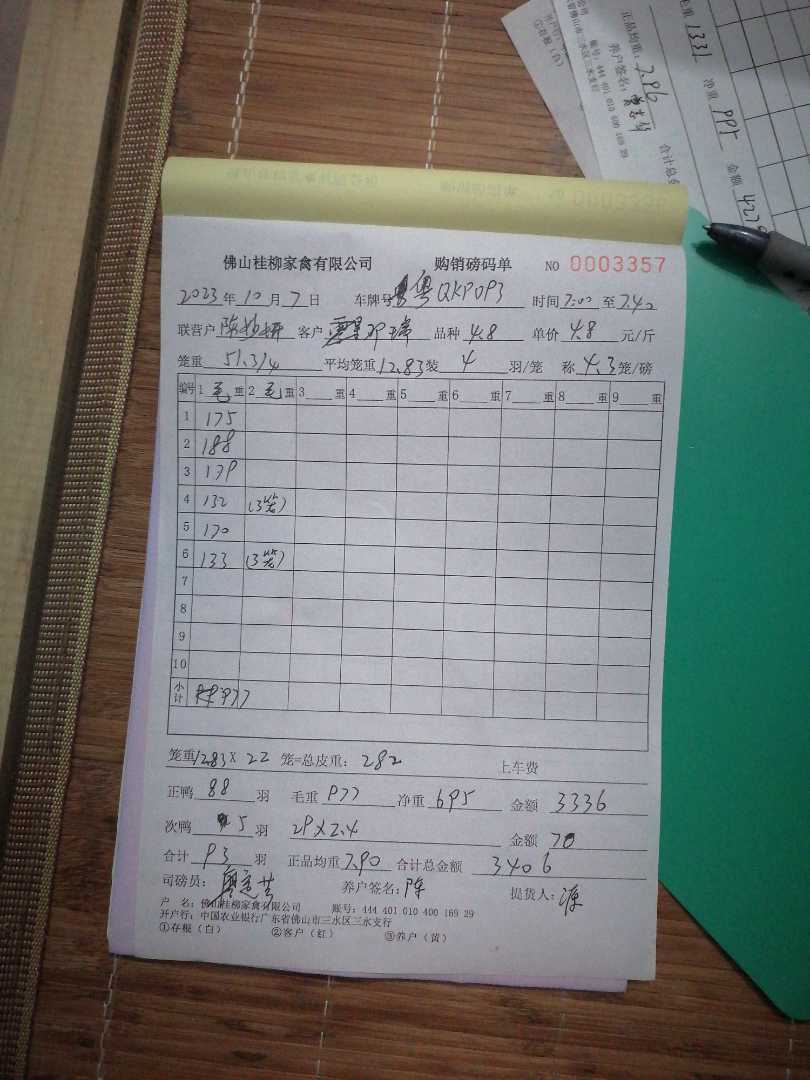 佛山桂柳家禽有限公司 购销磅码单 NO 0003357
2023年10月7日 车牌号 粤QKP0P3 时间 7:00 至 7.42
联营户 陈 客户 邓 品种 4.8 单价 4.8 元/斤
笼重 51.3/4 平均笼重 12.83 装 4 羽/笼 称 4.3 笼/磅
编号 1 毛 重 2 毛 重 3 重 4 重 5 重 6 重 7 重 8 重 9 重
1 175
2 188
3 179
4 132 (3笼)
5 170
6 133 (3笼)
7
8
9
10
小计 977
笼重 12.83 X 22 笼=总皮重: 282 上车费
正鸭 88 羽 毛重 977 净重 695 金额 3336
次鸭 5 羽 29X2.4 金额 70
合计 93 羽 正品均重 7.90 合计总金额 3406
司磅员: 养户签名: 陈 提货人: 源
户 名: 佛山桂柳家禽有限公司 账号: 444 401 010 400 169 29
开户行: 中国农业银行广东省佛山市三水区三水支行
①存根（白） ②客户（红） ③养户（黄）
毛重 1331 净重 995 金额
正品均重: 7.96
养户签名:
账号: 444 401 010 400 169 29
①存根（白）